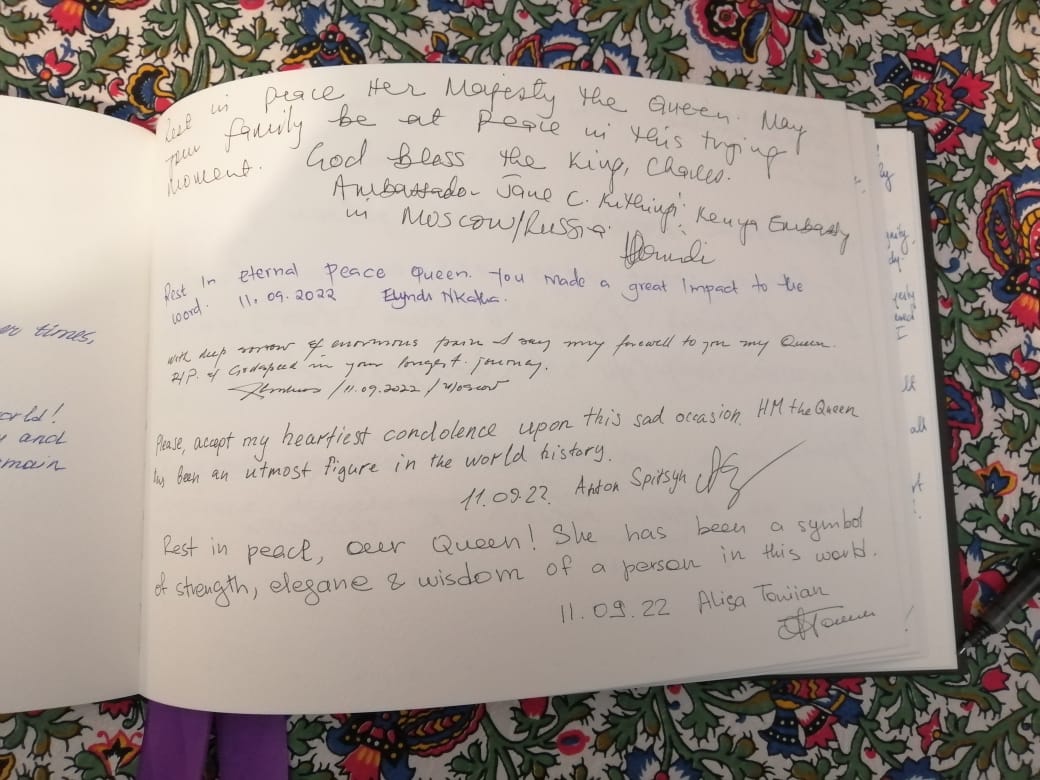 er times,
orld!
and
main
Rest in peace Her Majesty the Queen. May
your family be at peace in this trying
moment. God bless the King, Charles.
Ambassador Jane C. Kenya Embassy
in Moscow/Russia.
Rest In eternal peace Queen. You made a great Impact to the
word. 11.09.2022
With deep sorrow & enormous pain I say my farewell to you my Queen.
RIP. & Godspeed in your longest journey.
/11.09.2022/Moscow
Please, accept my heartiest condolence upon this sad occasion. HM the Queen
has been an utmost figure in the world history.
11.09.22. Anton Spitsyn
Rest in peace, our Queen! She has been a symbol
of strength, elegane & wisdom of a person in this world.
11.09.22 Alisa